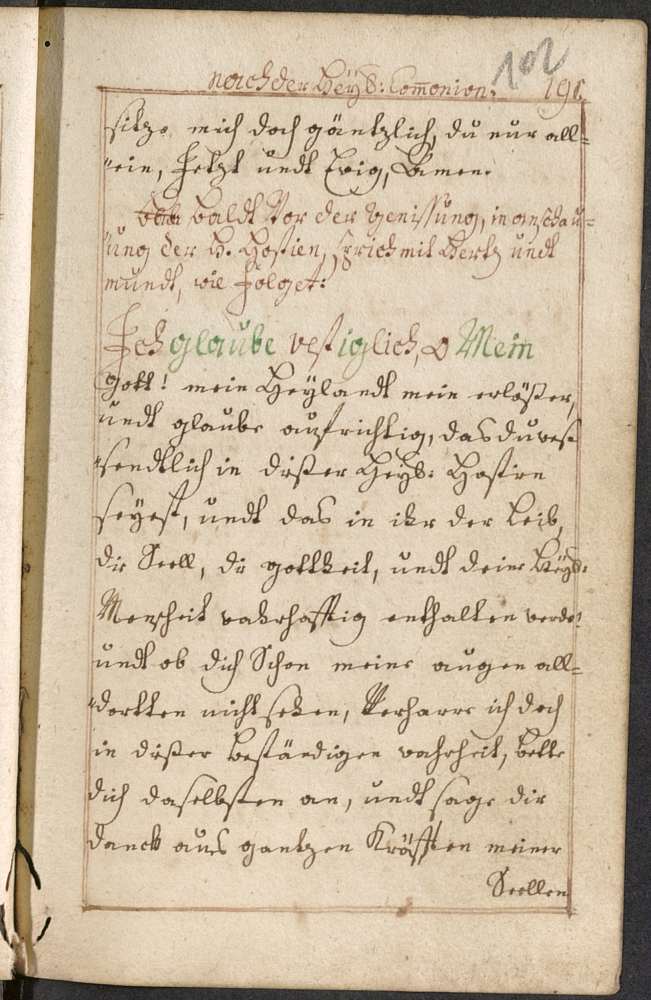 102
nach der Heyß: Com̄onion. 191
sitze mich doch gäntzlich, du nur all=
"ein, Jetzt undt Ewig, Amen.
baldt Vor der genissung, in anschau=
"ung der H. Hostien, sprich mit Hertz undt
mundt, wie folget:
Ich glaube vestiglich, O Mein
gott! mein Heylandt mein erlößer,
undt glaube aufrichtig, das du weß
"sendtlich in dißer Heyß: Hostien
seyest, undt das in ihr der Leib,
die Seell, die gottheit, undt deine Heyß:
Menscheit wahrhafftig enthalten werde!
undt ob dich Schon meine augen all=
"dortten nicht sehen, Verharre ich doch
in dißer beständigen wahrheit, bette
dich daselbsten an, undt sage dir
danck aus gantzen Kräfften meiner
Seellen